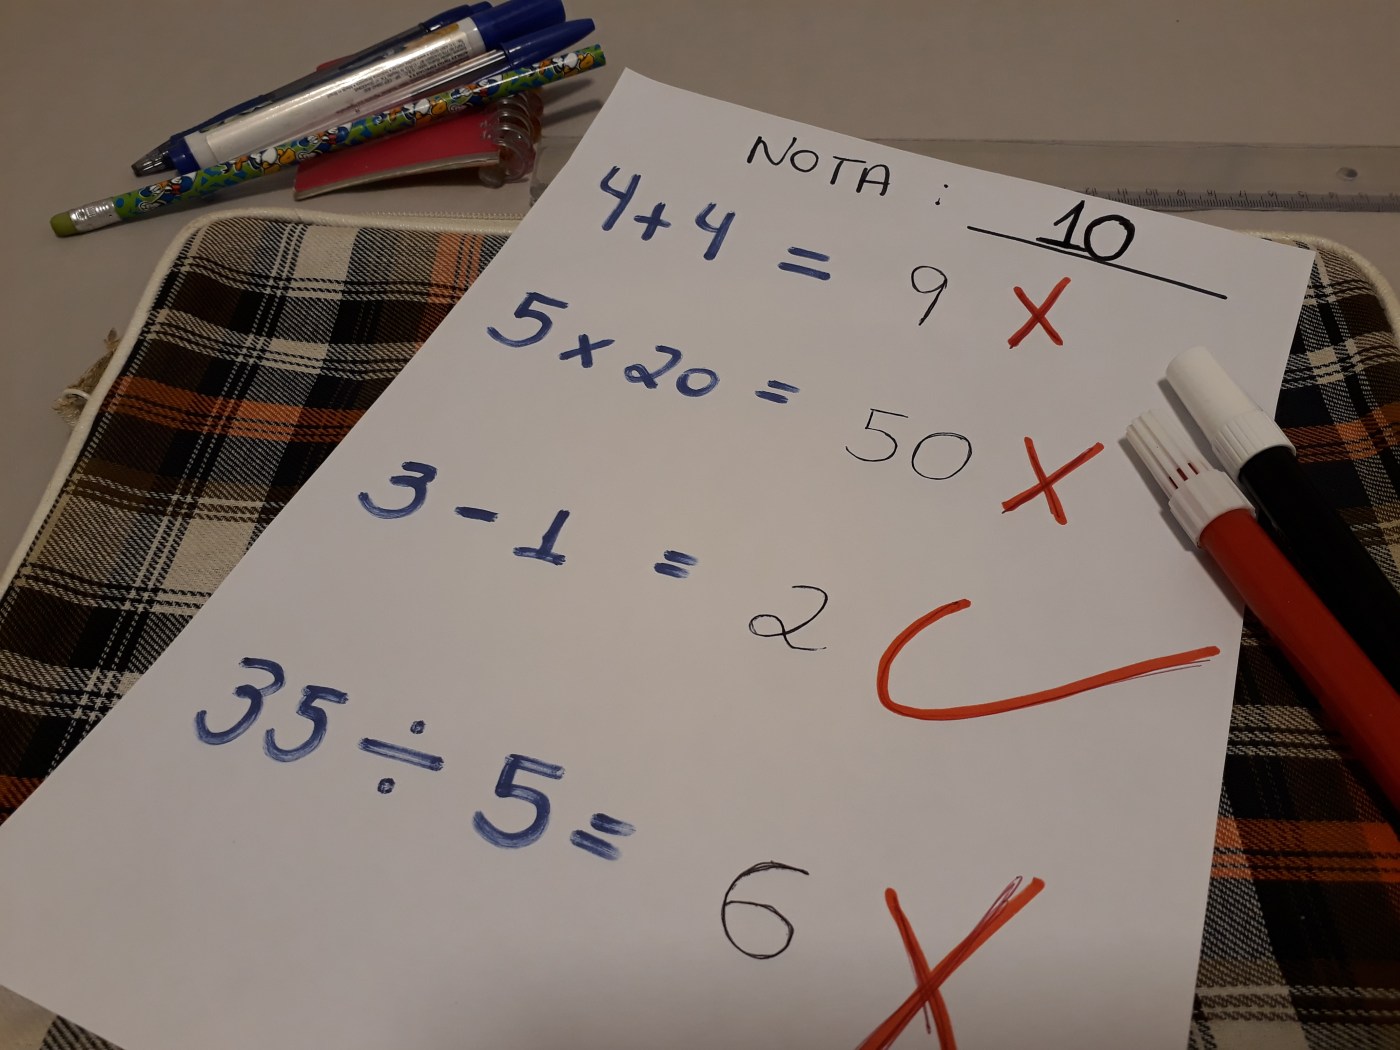 NOTA: 10
4+4 = 9 X
5x20 = 50 X
3-1 = 2 ✓
35÷5= 6 X